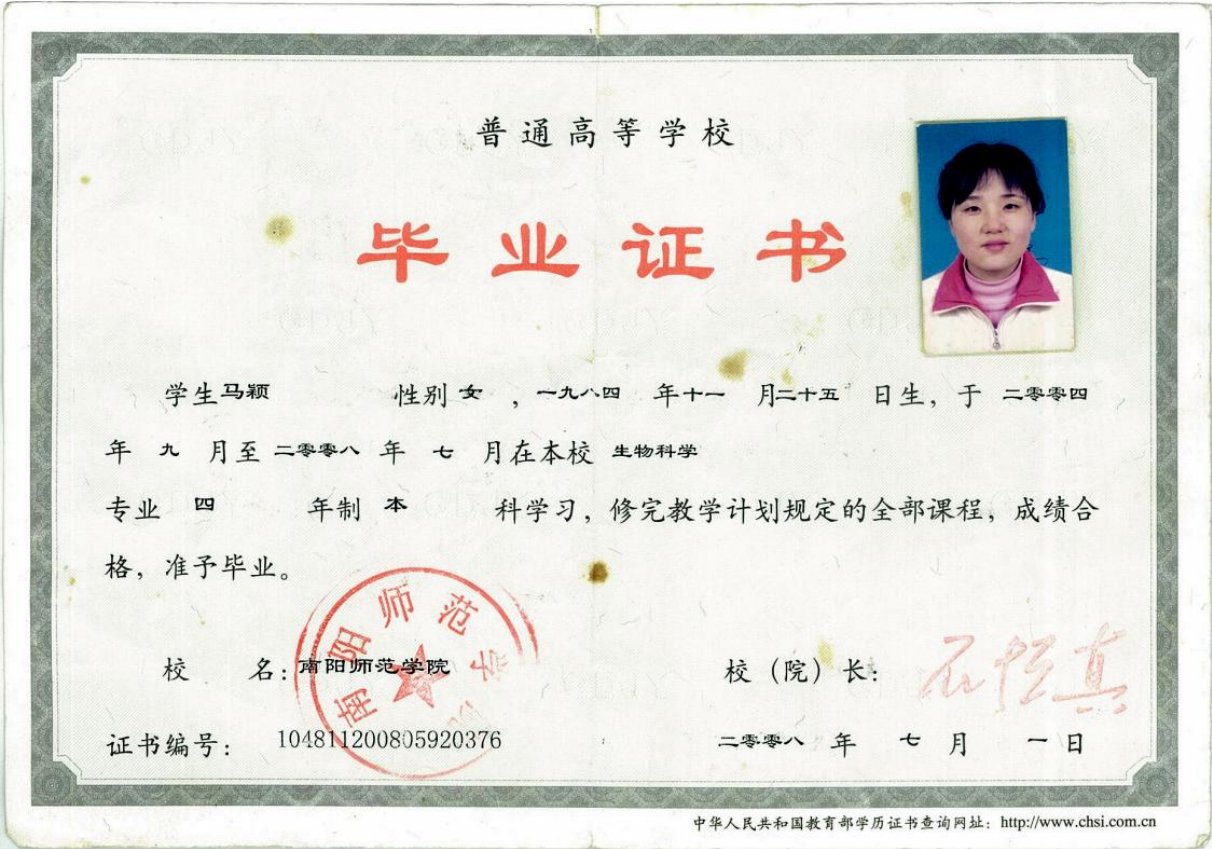 普通高等学校
毕业证书
学生马颖 性别女，一九八四年十一月二十五日生，于二零零四
年九月至二零零八年七月在本校生物科学
专业四年制本科学习，修完教学计划规定的全部课程，成绩合
格，准予毕业。
校 名：南阳师范学院
南阳师范学院
校（院）长：石恒真
证书编号：104811200805920376
二零零八年七月一日
中华人民共和国教育部学历证书查询网址：http://www.chsi.com.cn